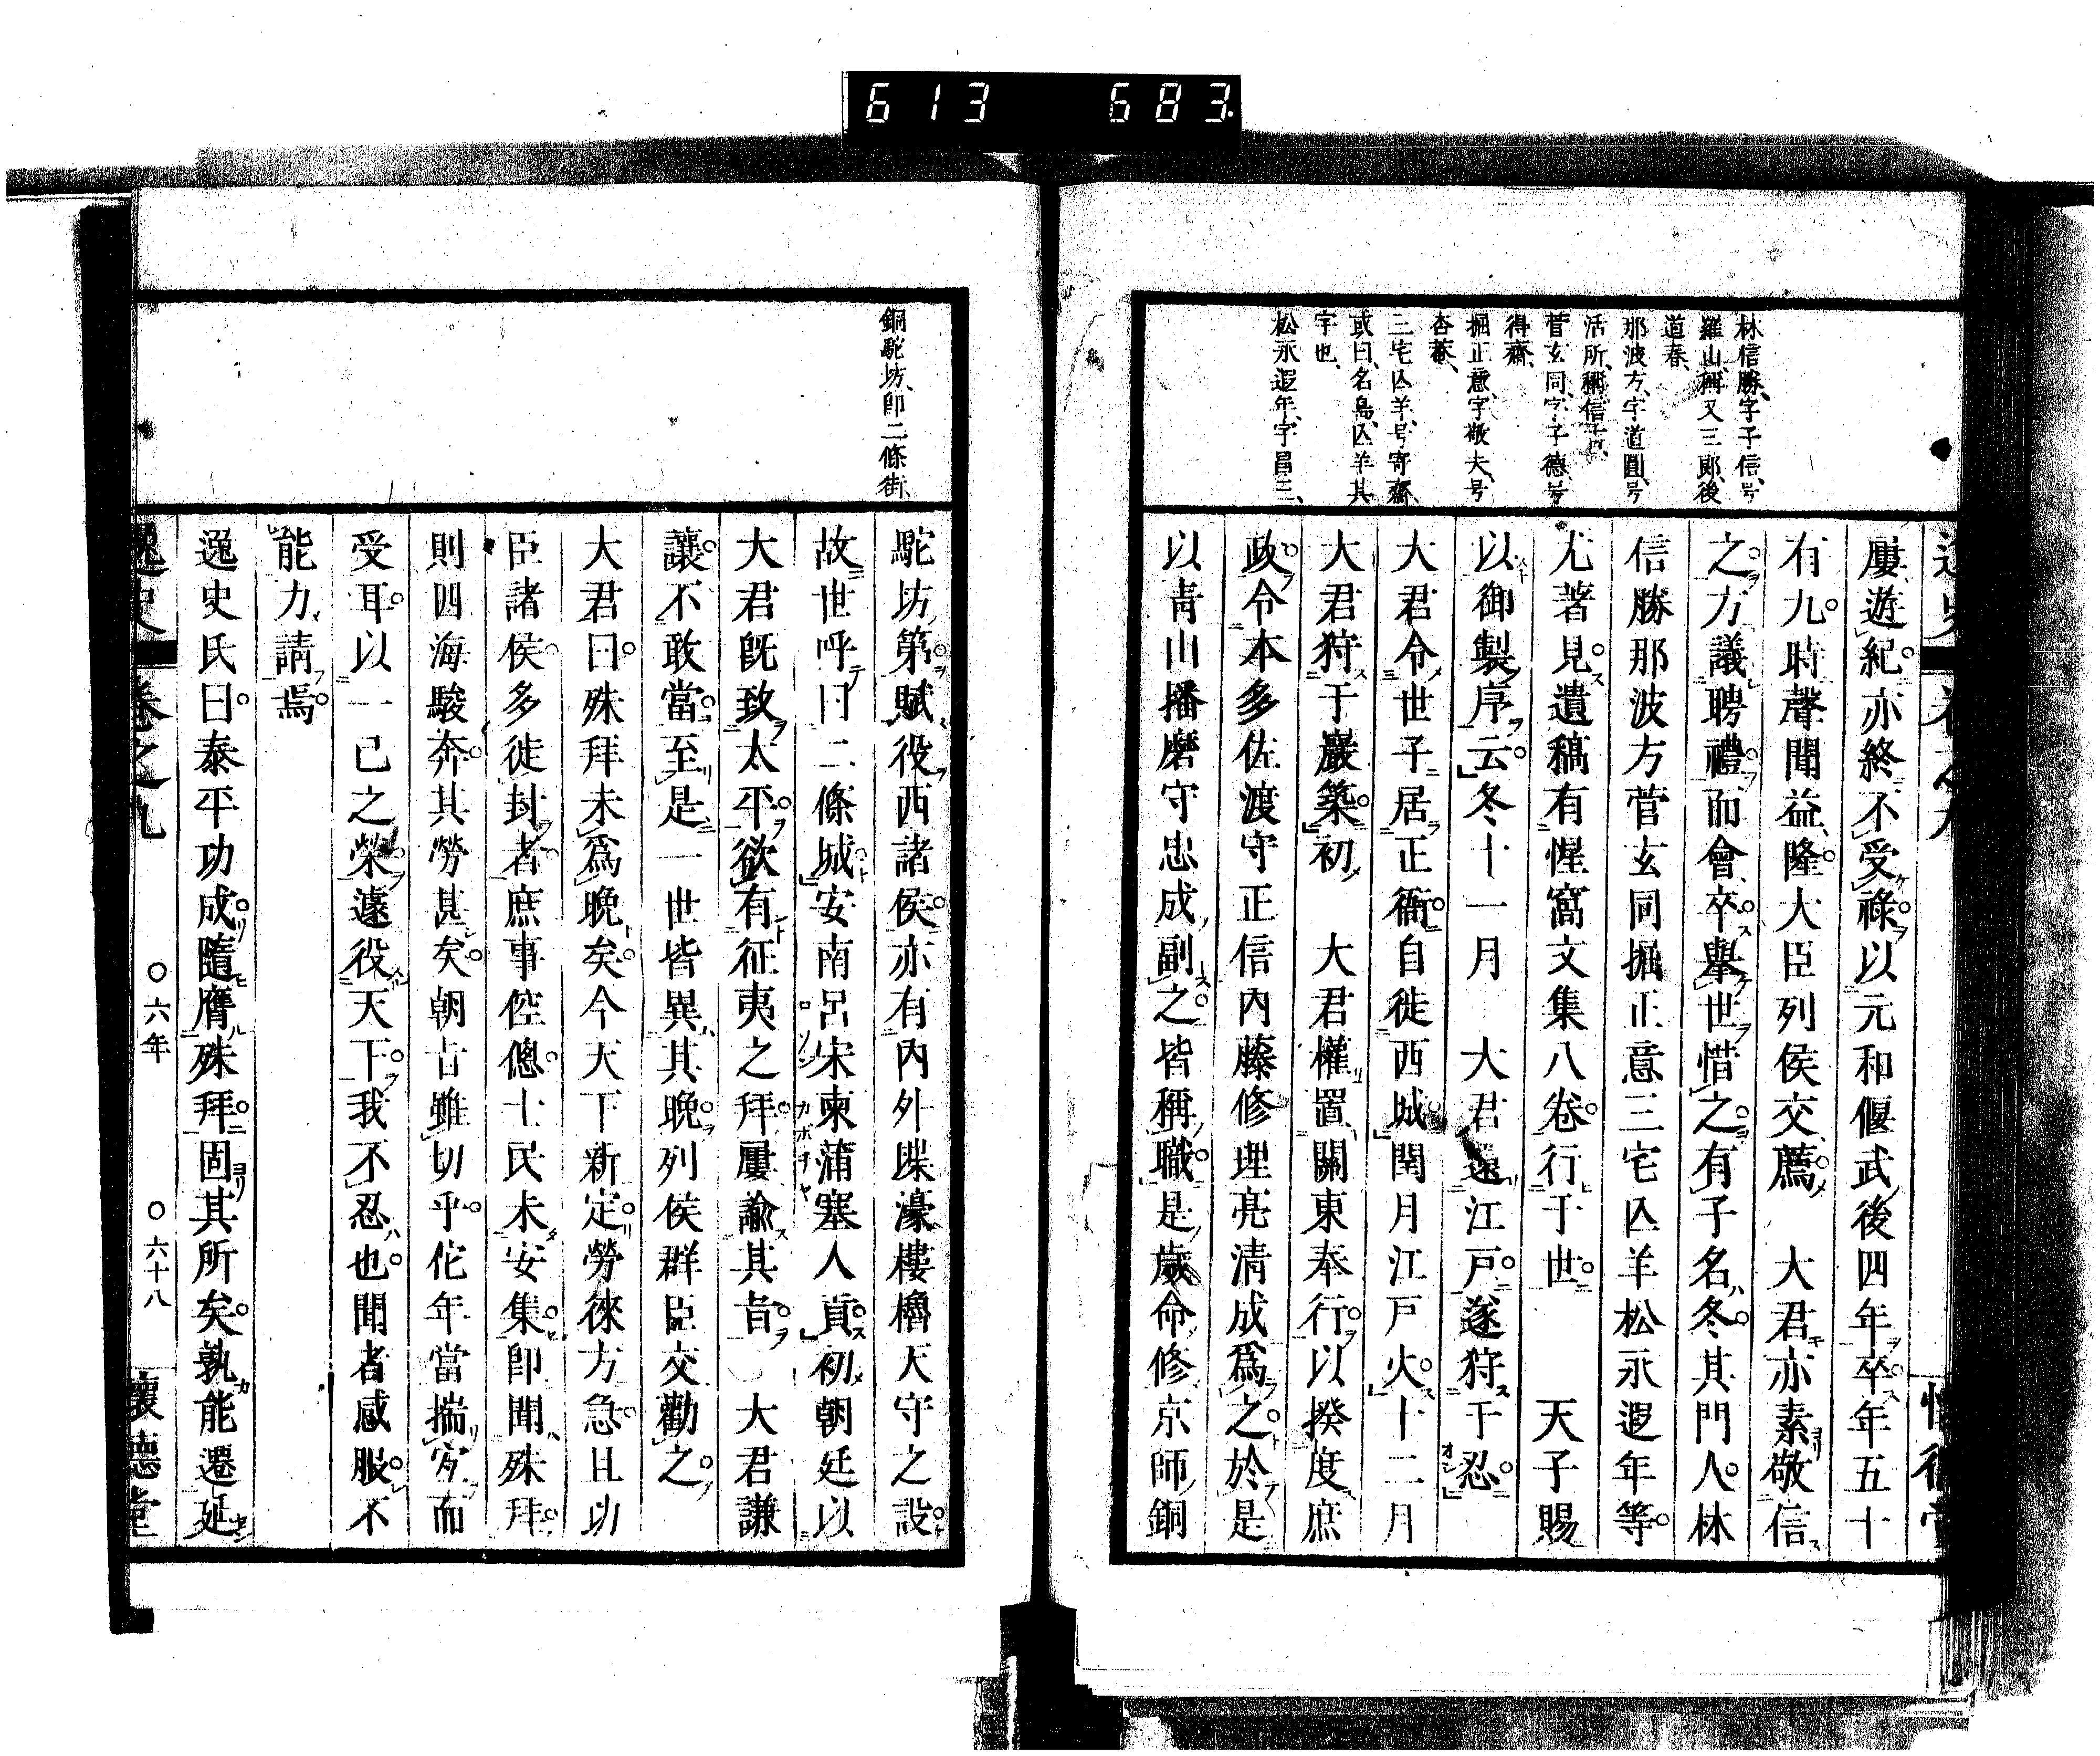 613 683
林信勝、字子信、号
羅山、稱又三郎、後
道春、
那波方、字道圓、号
活所、稱信吉、
菅玄同、字子德、号
得齋、
堀正意、字敬夫、号
杏菴、
三宅亾羊、号寄齋、
或曰、名島、亾羊其
字也、
松永遐年、字昌三、
屢遊紀亦終不受祿以元和偃武後四年卒年五十
有九時聲聞益隆大臣列侯交薦 大君亦素敬信
之方議聘禮而會卒擧世惜之有子名冬其門人林
信勝那波方菅玄同堀正意三宅亾羊松永遐年等
尤著見遺稿有惺窩文集八卷行于世 天子賜
以御製序云冬十一月 大君還江戸遂狩于忍
大君令世子居正衙自徙西城閏月江戸火十二月
大君狩于巖築初 大君權置關東奉行以揆度庶
政令本多佐渡守正信內藤修理亮清成爲之於是
以青山播磨守忠成副之皆稱職是歲命修京師銅
銅駝坊、即二條街、
駝坊第賦役西諸侯亦有內外堞濠樓櫓天守之設
故世呼曰二條城安南呂宋柬蒲塞人貢初朝廷以
大君既致太平欲有征夷之拜屢諭其旨 大君謙
讓不敢當至是一世皆異其晚列侯群臣交勸之
大君曰殊拜未爲晚矣今天下新定勞徠方急且功
臣諸侯多徙封者庶事倥傯士民未安集即聞殊拜
則四海駿奔其勞甚矣朝古雖切乎佗年當揣宐而
受耳以一已之榮遽役天下我不忍也聞者感服不
能力請焉
逸史氏曰泰平功成隨膺殊拜固其所矣孰能遷延
逸史 卷之九 〇六年 〇六十八 懷德堂